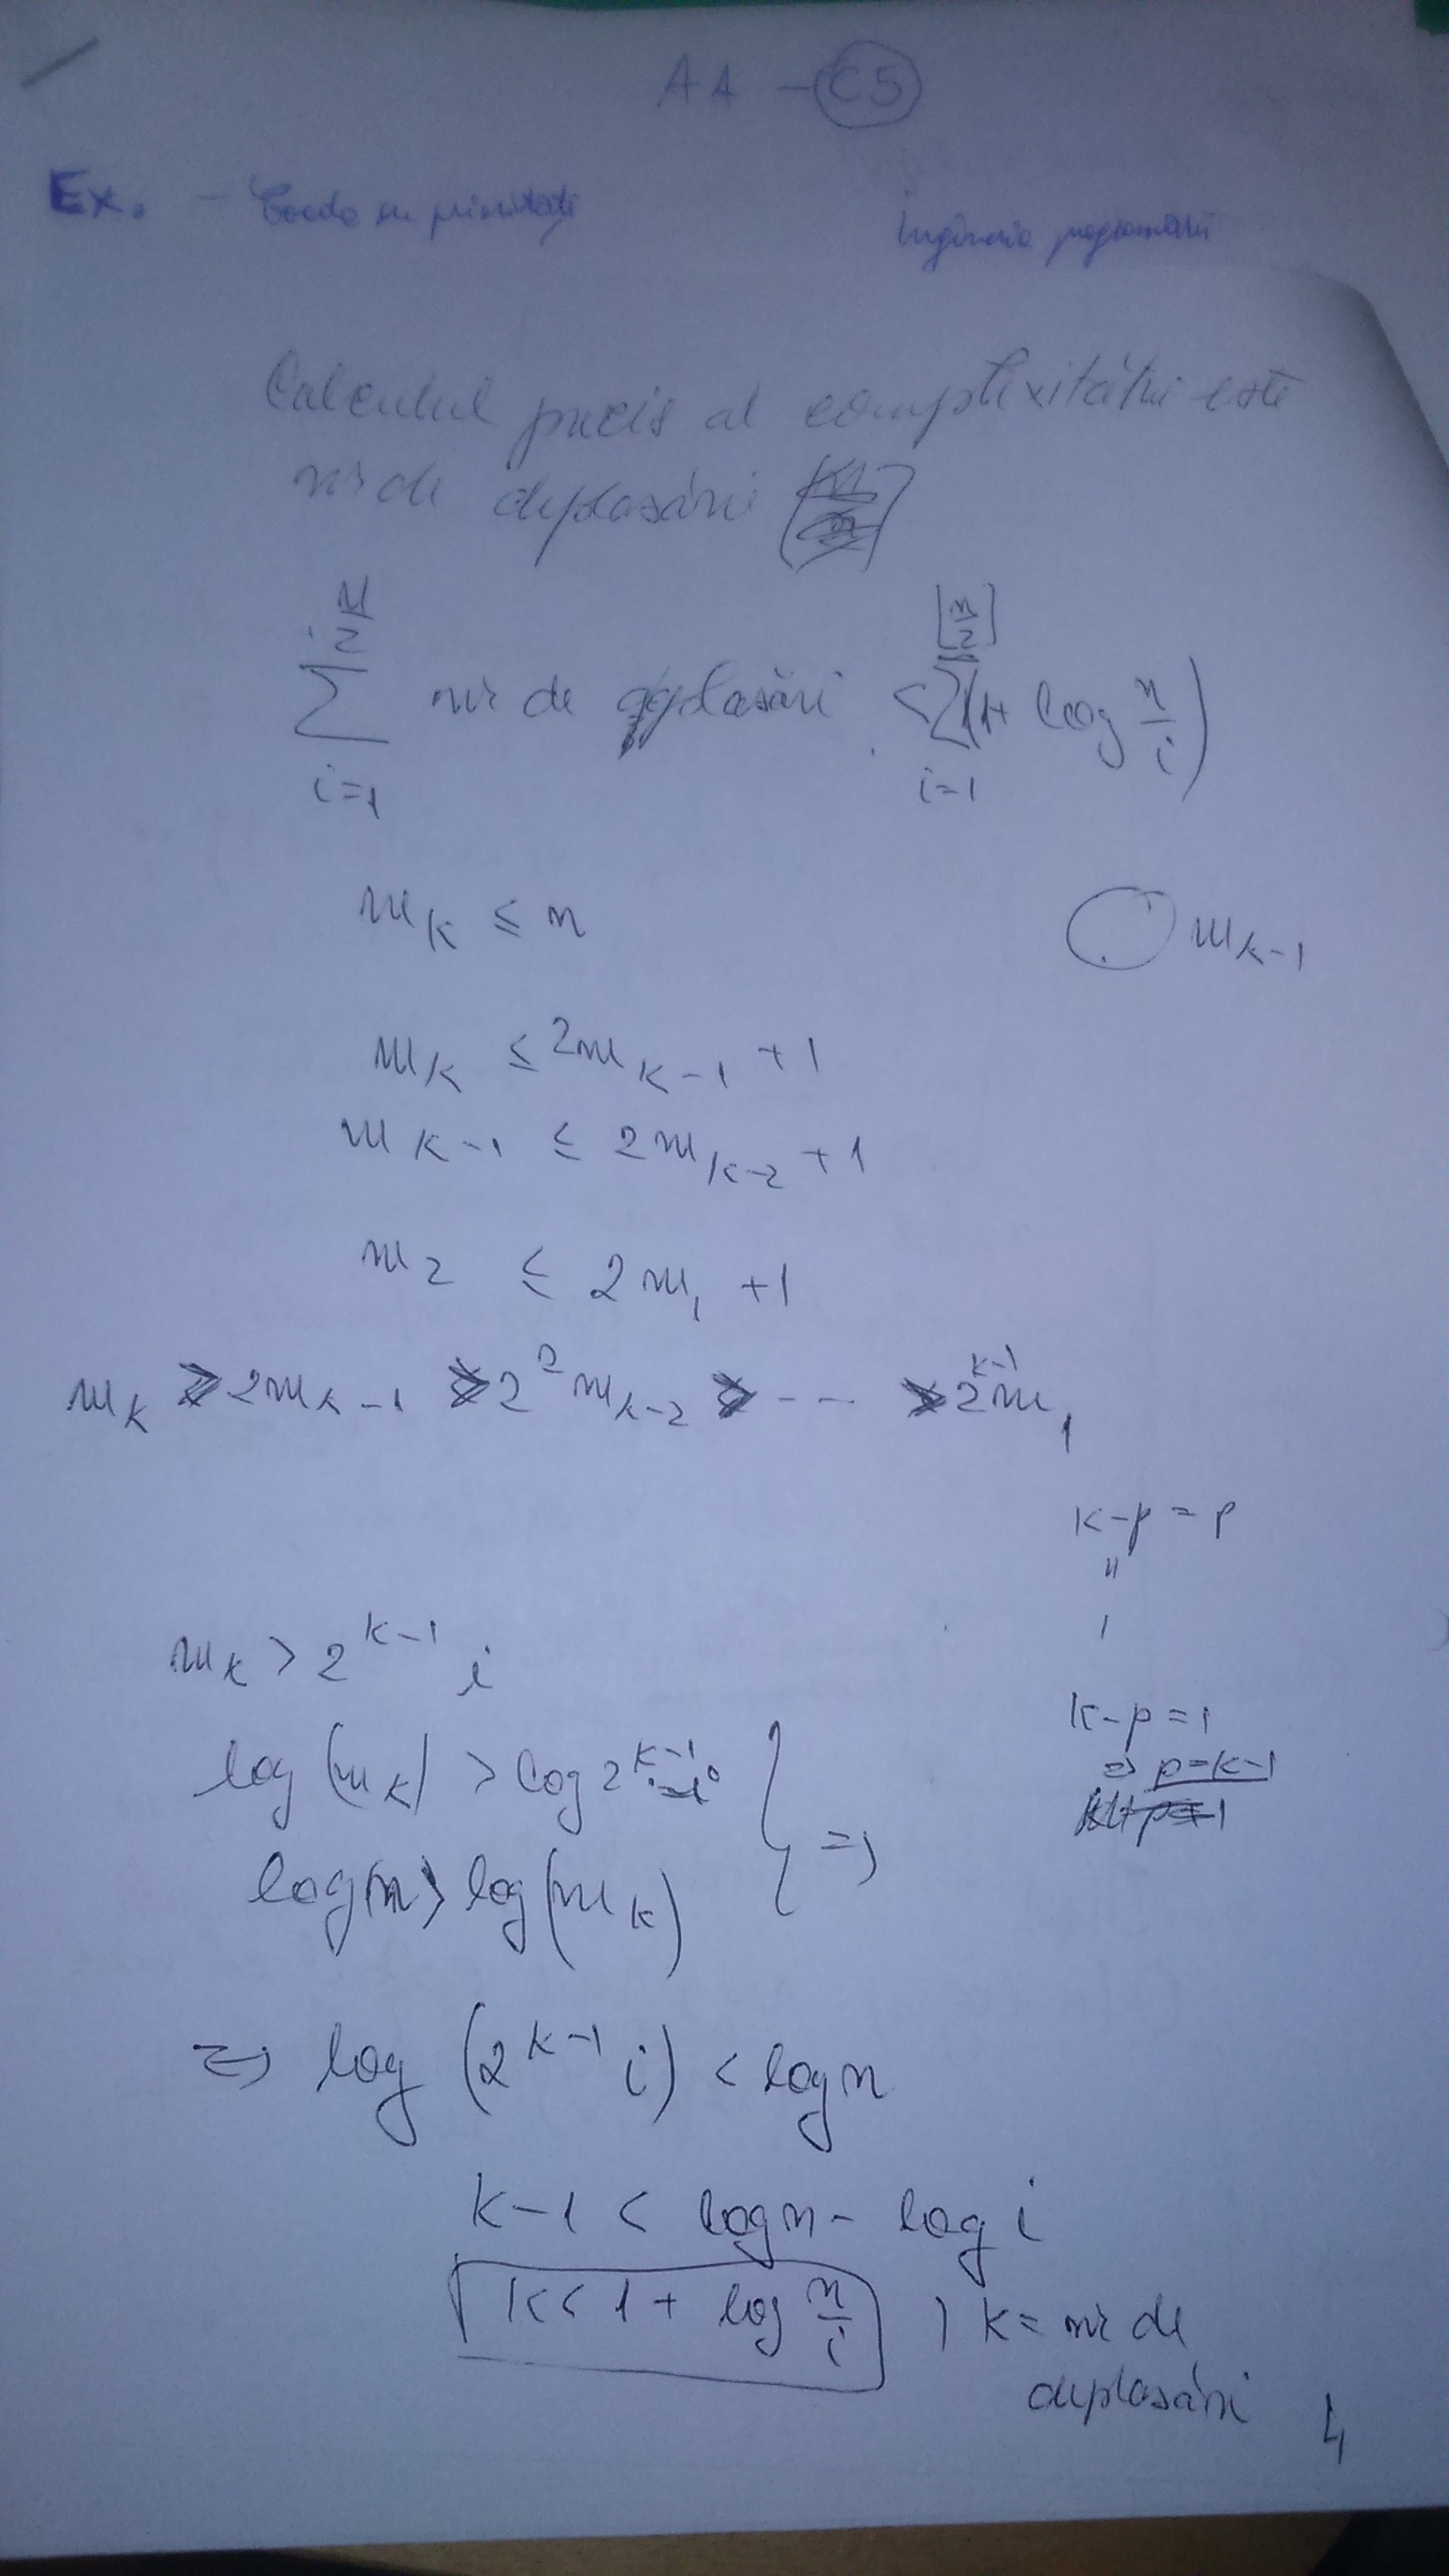 AA - C5
Ex. - Coada cu priorități
Ingineria programării
Calculul precis al complexității este
nr de deplasări
\sum_{i=1}^{\frac{n}{2}} nr de deplasări < \sum_{i=1}^{[\frac{n}{2}]} (1 + log \frac{n}{i})
m_k ≤ n
m_{k-1}
m_k ≤ 2m_{k-1} + 1
m_{k-1} ≤ 2m_{k-2} + 1
m_2 ≤ 2m_1 + 1
m_k > 2m_{k-1} > 2^2 m_{k-2} > --- > 2^{k-1} m_1
k-p = p
"
1
m_k > 2^{k-1} i
k-p = 1
⇒ p = k-1
log(m_k) > log 2^{k-1} i
log(n) > log(m_k) } ⇒
⇒ log (2^{k-1} i) < log n
k-1 < log n - log i
k < 1 + log \frac{n}{i} , k = nr de
deplasări
4